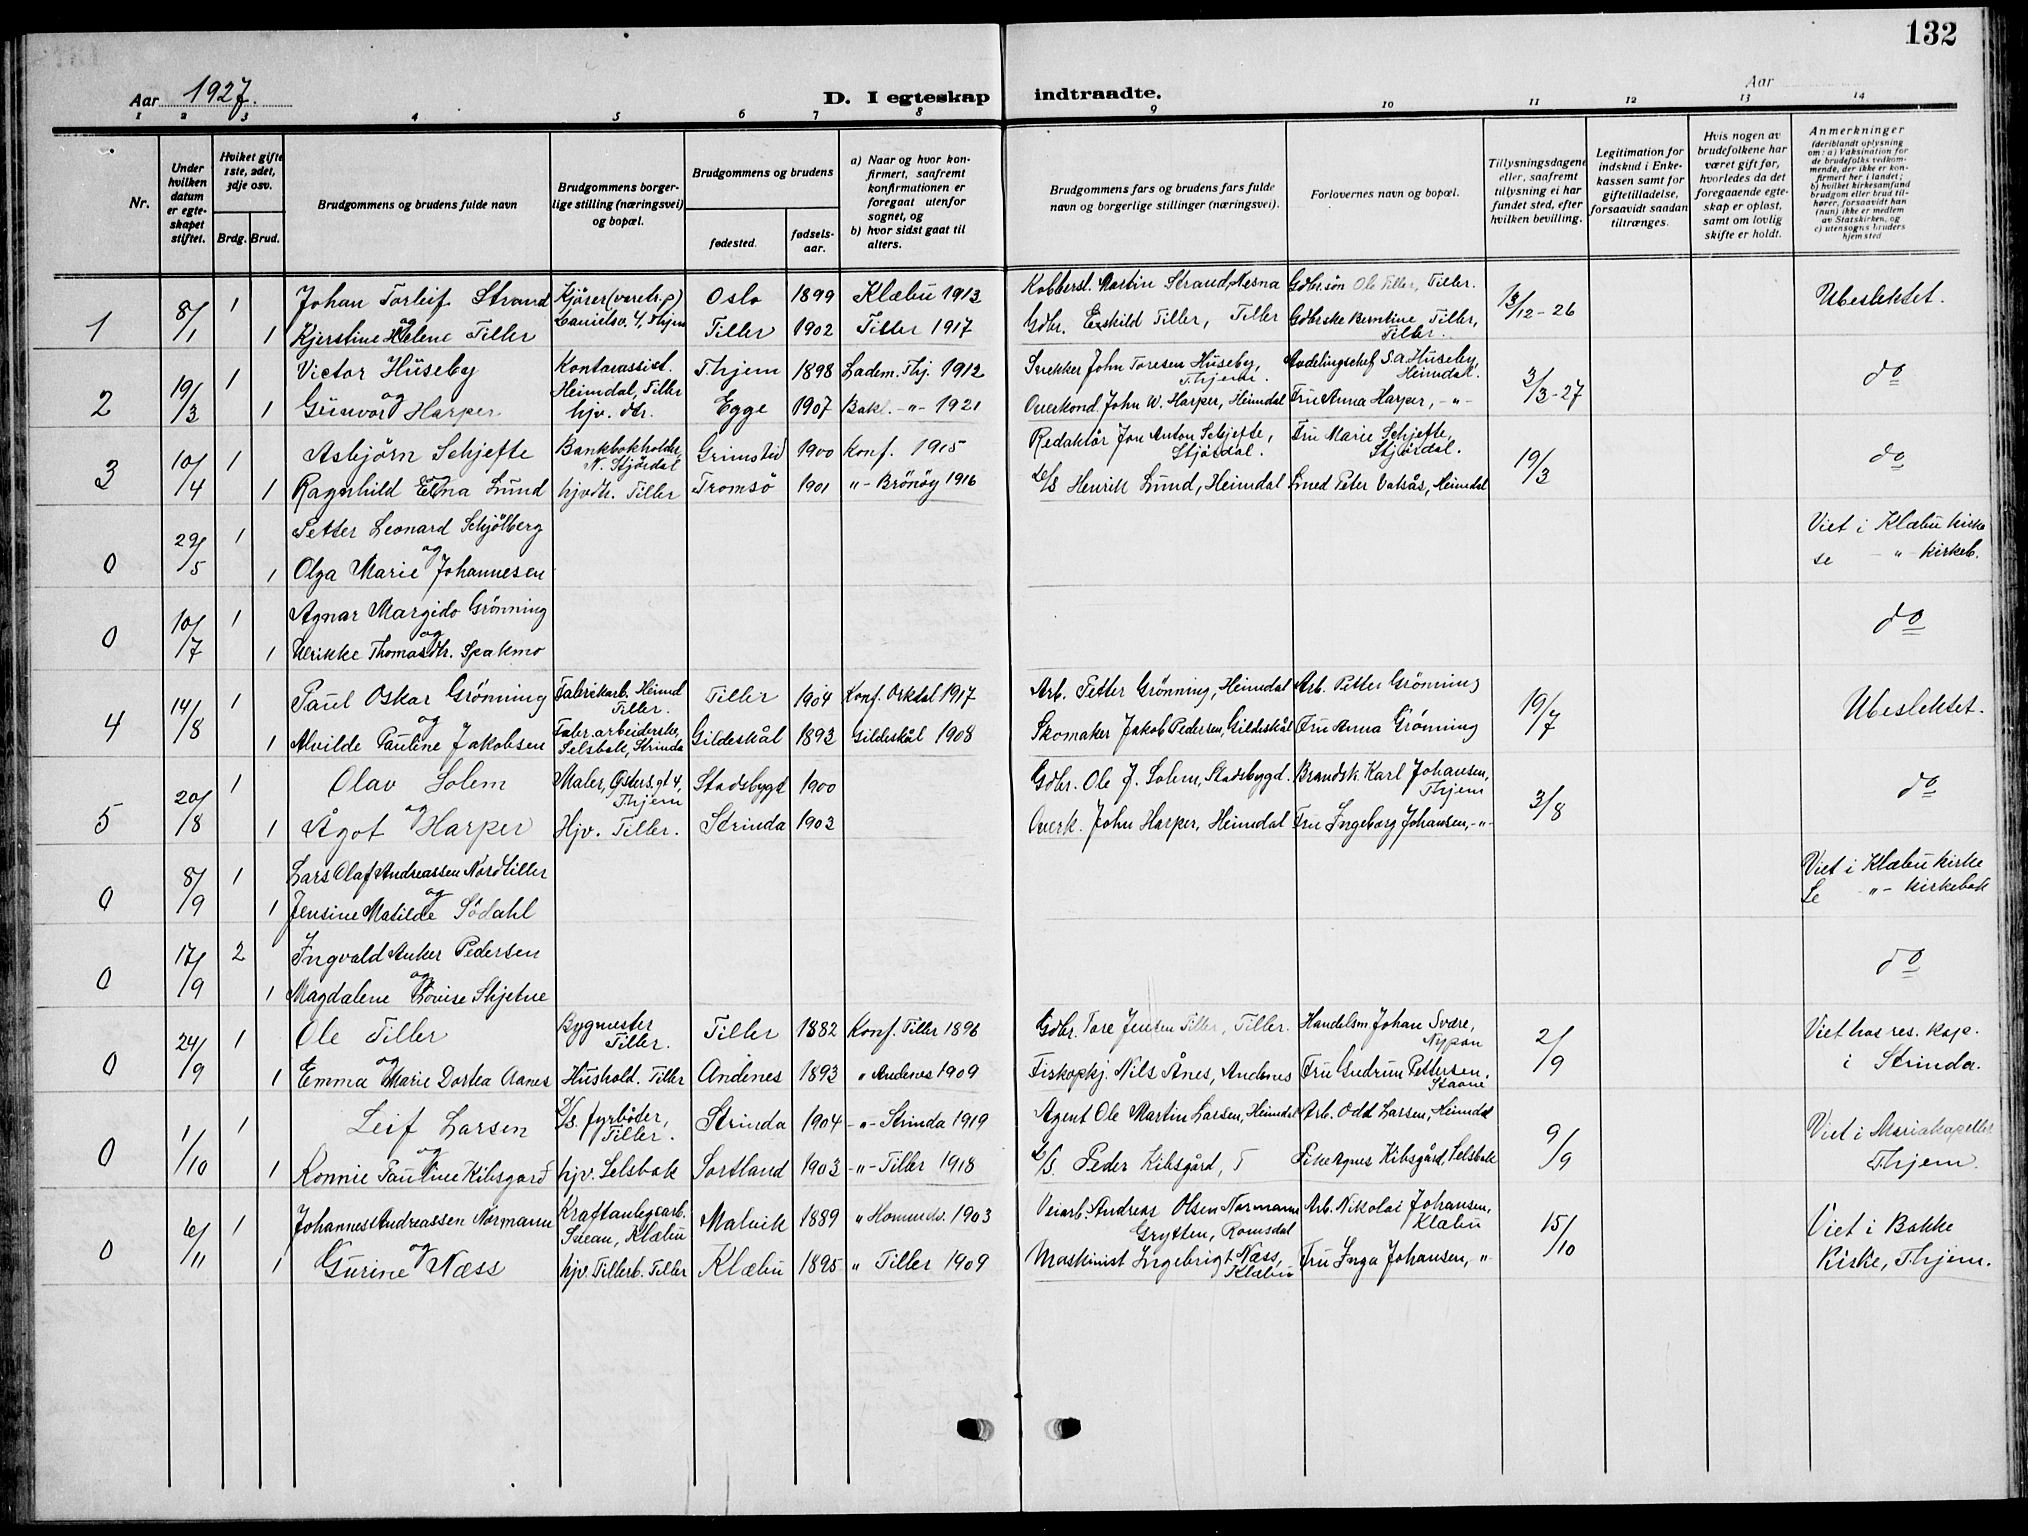 132
Aar 1927.
D. I egteskap indtraadte.
Aar
1 2 3 4 5 6 7 8 9 10 11 12 13 14
Nr.
Under hvilken datum er egteskapet stiftet.
Hvilket gifte 1ste, 2det, 3dje osv.
Brdg. Brud.
Brudgommens og brudens fulde navn
Brudgommens borgerlige stilling (næringsvei) og bopæl.
Brudgommens og brudens
fødested.
fødselsaar.
a) Naar og hvor konfirmert, saafremt konfirmationen er foregaat utenfor sognet, og
b) hvor sidst gaat til alters.
Brudgommens fars og brudens fars fulde navn og borgerlige stillinger (næringsvei).
Forlovernes navn og bopæl.
Tillysningsdagene eller, saafremt tillysning ei har fundet sted, efter hvilken bevilling.
Legitimation for indskud i Enkekassen samt for giftetilladelse, forsaavidt saadan tiltrænges.
Hvis nogen av brudefolkene har været gift før, hvorledes da det foregaaende egteskap er opløst, samt om lovlig skifte er holdt.
Anmerkninger (deriblandt oplysning om: a) Vaksination for de brudefolks vedkommende, der ikke er konfirmert her i landet; b) hvilket kirkesamfund brudgom eller brud tilhører, forsaavidt han (hun) ikke er medlem av Statskirken, og c) utensogns bruders hjemsted
1 8/1 1 Johan Torleif Strand Kjører (varetr.p) Danielsv. 4, Thjem Oslo 1899 Klæbu 1913 Kobbersl. Martin Strand, Nesna Gdbr.søn Ole Tiller, Tiller. 13/12-26 Ubeslektet.
og
1 Kjerstine Helene Tiller Tiller 1902 Tiller 1917 Gdbr. Eskild Tiller, Tiller Gdbrske Berntine Tiller, Tiller.
2 19/3 1 Victor Huseby Kontorassist. Heimdal, Tiller Thjem 1898 Ladem. Thj. 1912 Snekker John Toresen Huseby, Thjem. Avdelingschef S.A. Huseby, Heimdal. 3/3-27 do
og
1 Gunvor Harper hjv. do. Egge 1907 Bakl. -"- 1921 Overkond. John W. Harper, Heimdal Fru Anna Harper, -"-
3 10/4 1 Asbjørn Schjefte Bankbokholder, N. Stjørdal Grimstad 1900 Konf. 1915 Redaktør Jon Anton Schjefte, Stjørdal. Fru Marie Schjefte, Stjørdal. 19/3 do
og
1 Ragnhild Edna Lund hjvdt. Tiller Tromsø 1901 "- Brønøy 1916 Henrik Lund, Heimdal Smed Peter Vatsås, Heimdal
0 29/5 1 Petter Leonard Schjølberg Viet i Klæbu kirke
og
1 Olga Marie Johannesen se -"- kirkeb.
0 10/7 1 Agnar Margido Grønning do
og
1 Ulrikke Thomasdtr. Spakmo
4 14/8 1 Paul Oskar Grønning Fabrikarb. Heimd Tiller. Tiller 1904 Konf. Orkdal 1917 Arb. Petter Grønning, Heimdal Arb. Petter Grønning 19/7 Ubeslektet.
og
1 Alvilde Pauline Jakobsen Fabr. arbeiderske, Selsbak, Strinda Gildeskål 1893 Gildeskål 1908 Skomaker Jakob Pedersen, Gildeskål Fru Anna Grønning
5 20/8 1 Olav Solem Maler, Østers.gt 4, Thjem Stadsbygd 1900 Gdbr. Ole J. Solem, Stadsbygd. Brandsk. Karl Johansen, Thjem 3/8 do
og
1 Ågot Harper Hjv. Tiller. Strinda 1903 Overk. John Harper, Heimdal Fru Ingeborg Johansen, -"-
0 8/9 1 Lars Olaf Andreassen Nordtiller Viet i Klæbu kirke
og
1 Jensine Matilde Sødahl Se -"- kirkebok
0 17/9 2 Ingvald Anker Pedersen do
og
1 Magdalene Lovise Skjetne
0 24/9 1 Ole Tiller Bygmester Tiller. Tiller 1882 Konf. Tiller 1896 Gdbr. Tore Jensen Tiller, Tiller. Handelsm. Johan Svare, Nypan 2/9 Viet hos res. kap.
og
1 Emma Marie Dortea Aanes Hushold. Tiller Andenes 1893 " Andenes 1909 Fiskopkj. Nils Ånes, Andenes Fru Gudrun Pettersen, Staavne i Strinda.
0 1/10 1 Leif Larsen fyrbøder, Tiller. Strinda 1904 -"- Strinda 1919 Agent Ole Martin Larsen, Heimdal Arb. Odd Larsen, Heimdal 9/9 Viet i Mariakapellet
og
1 Ronnie Pauline Kibsgård hjv. Selsbak Sortland 1903 -"- Tiller 1918 Peder Kibsgård, T Pike Agnes Kibsgård, Selsbak Thjem.
0 6/11 1 Johannes Andreassen Normann Kraftanlegsarb. Svean, Klæbu Malvik 1889 " Hommelv. 1903 Veiarb. Andreas Olsen Normann Grytten, Romsdal Arb. Nikolai Johansen, Klæbu 15/10 Viet i Bakke
og
1 Gurine Næss hjv. Tillerb. Tiller Klæbu 1895 " Tiller 1909 Maskinist Ingebrigt Næss, Klæbu Fru Inga Johansen, -"- Kirke, Thjem.